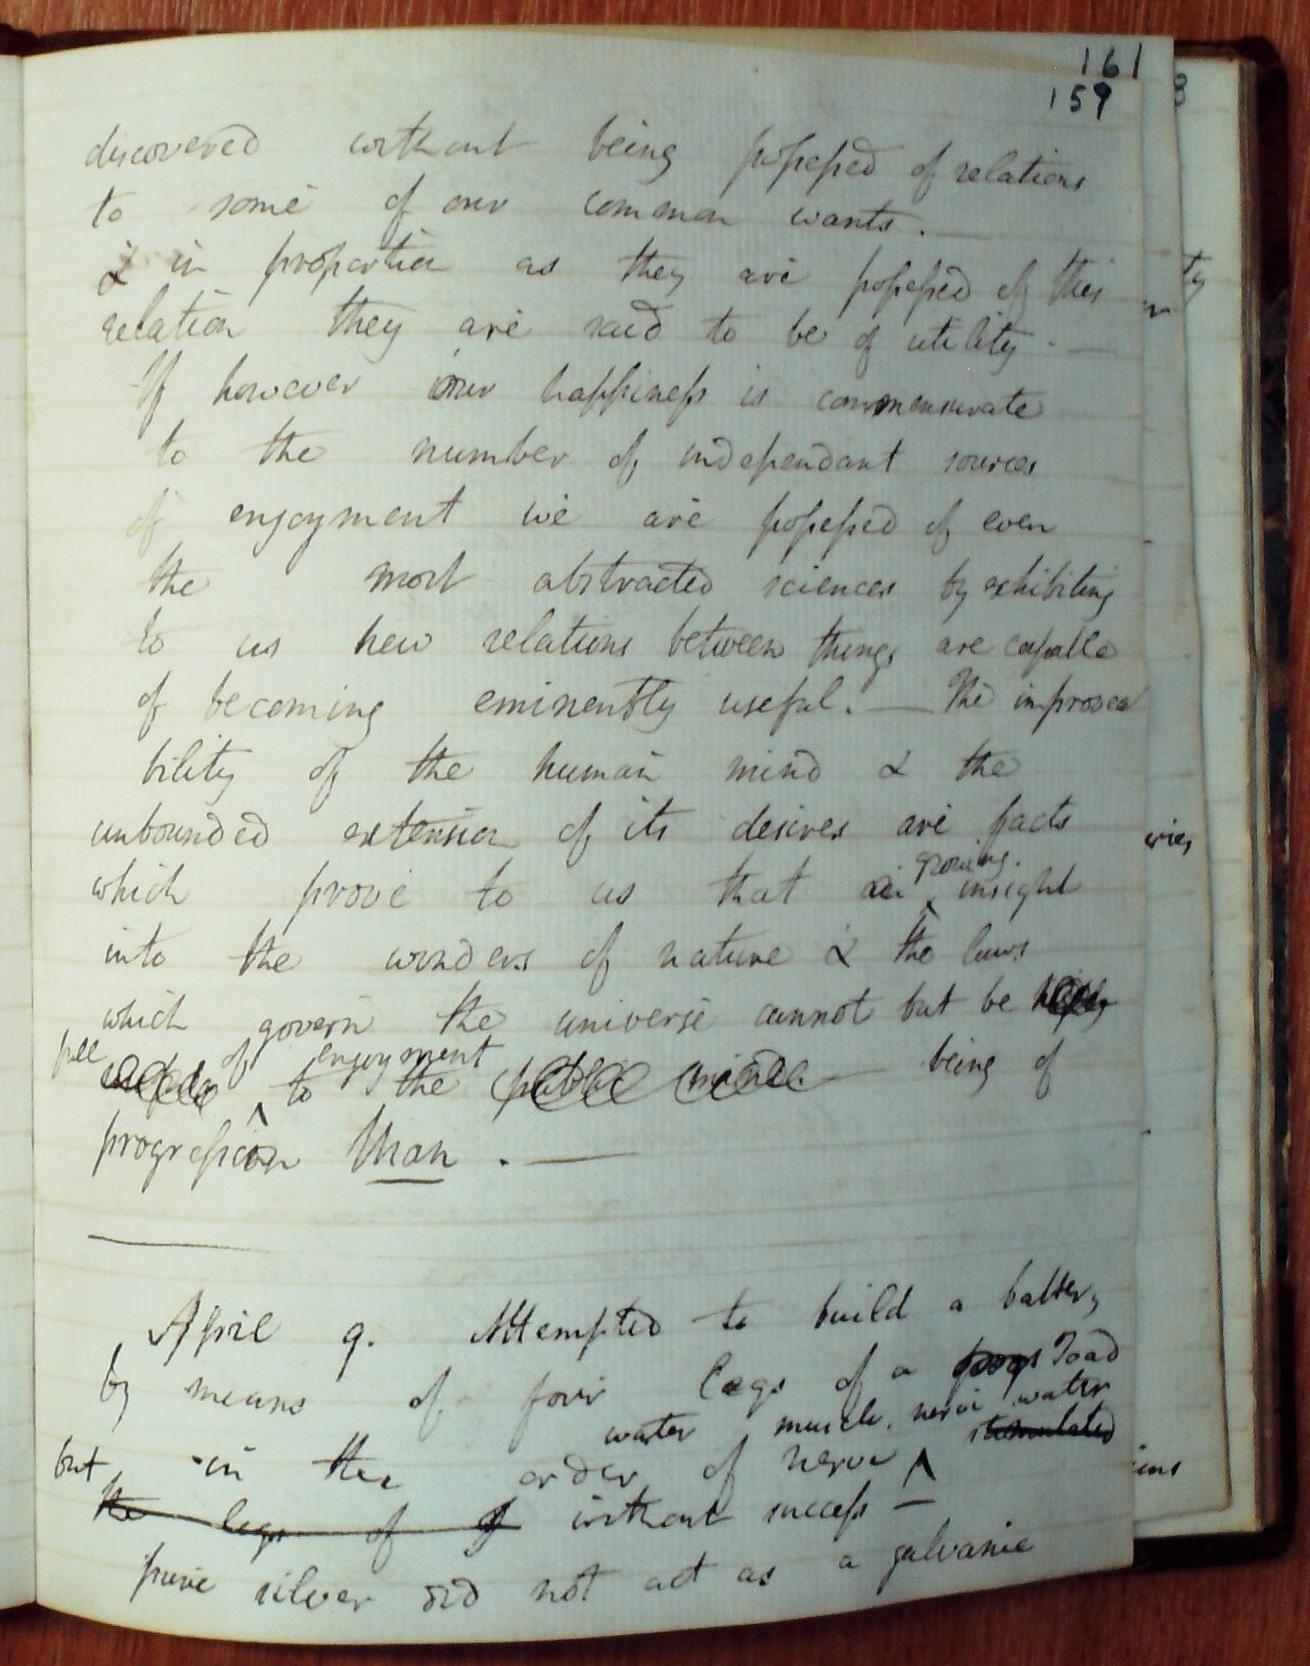 161
159
discovered without being possessed of relations
to some of our common wants. —
& in proportion as they are possessed of this
relation they are said to be of utility. —
If however our happiness is commensurate
to the number of independant sources
of enjoyment we are possessed of even
the most abstracted sciences by exhibiting
to us new relations between things are capable
of becoming eminently useful. — The improvea
bility of the human mind & the
unbounded extension of its desires are facts
growing.
which prove to us that insight
into the wonders of nature & the laws
which govern the universe cannot but be
full of enjoyment
to the public mind — being of
progression Man. —
April 9. Attempted to build a battery
by means of four legs of a frogs Toad
water muscle. nerve water
but in the order of nerve stimulated
the legs of without success —
pure silver did not act as a galvanic